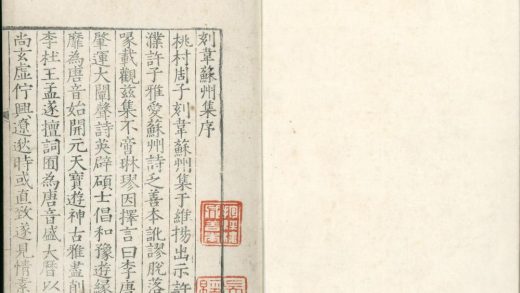 刻韋蘇州集序
桃村周子刻韋蘇州集于維揚出示許
濮許子雅愛蘇州詩乏喜本訛謬脫落
喙載觀茲集不啻琳璆因擇言曰李唐
肇運大闡聲詩英辟碩士倡和豫遊緣
靡為唐音始開元天寶遊神古雅盡削
李杜王孟遂擅詞囿為唐音盛大曆以
尚玄虛佇興遼逖時或直致遂見情素